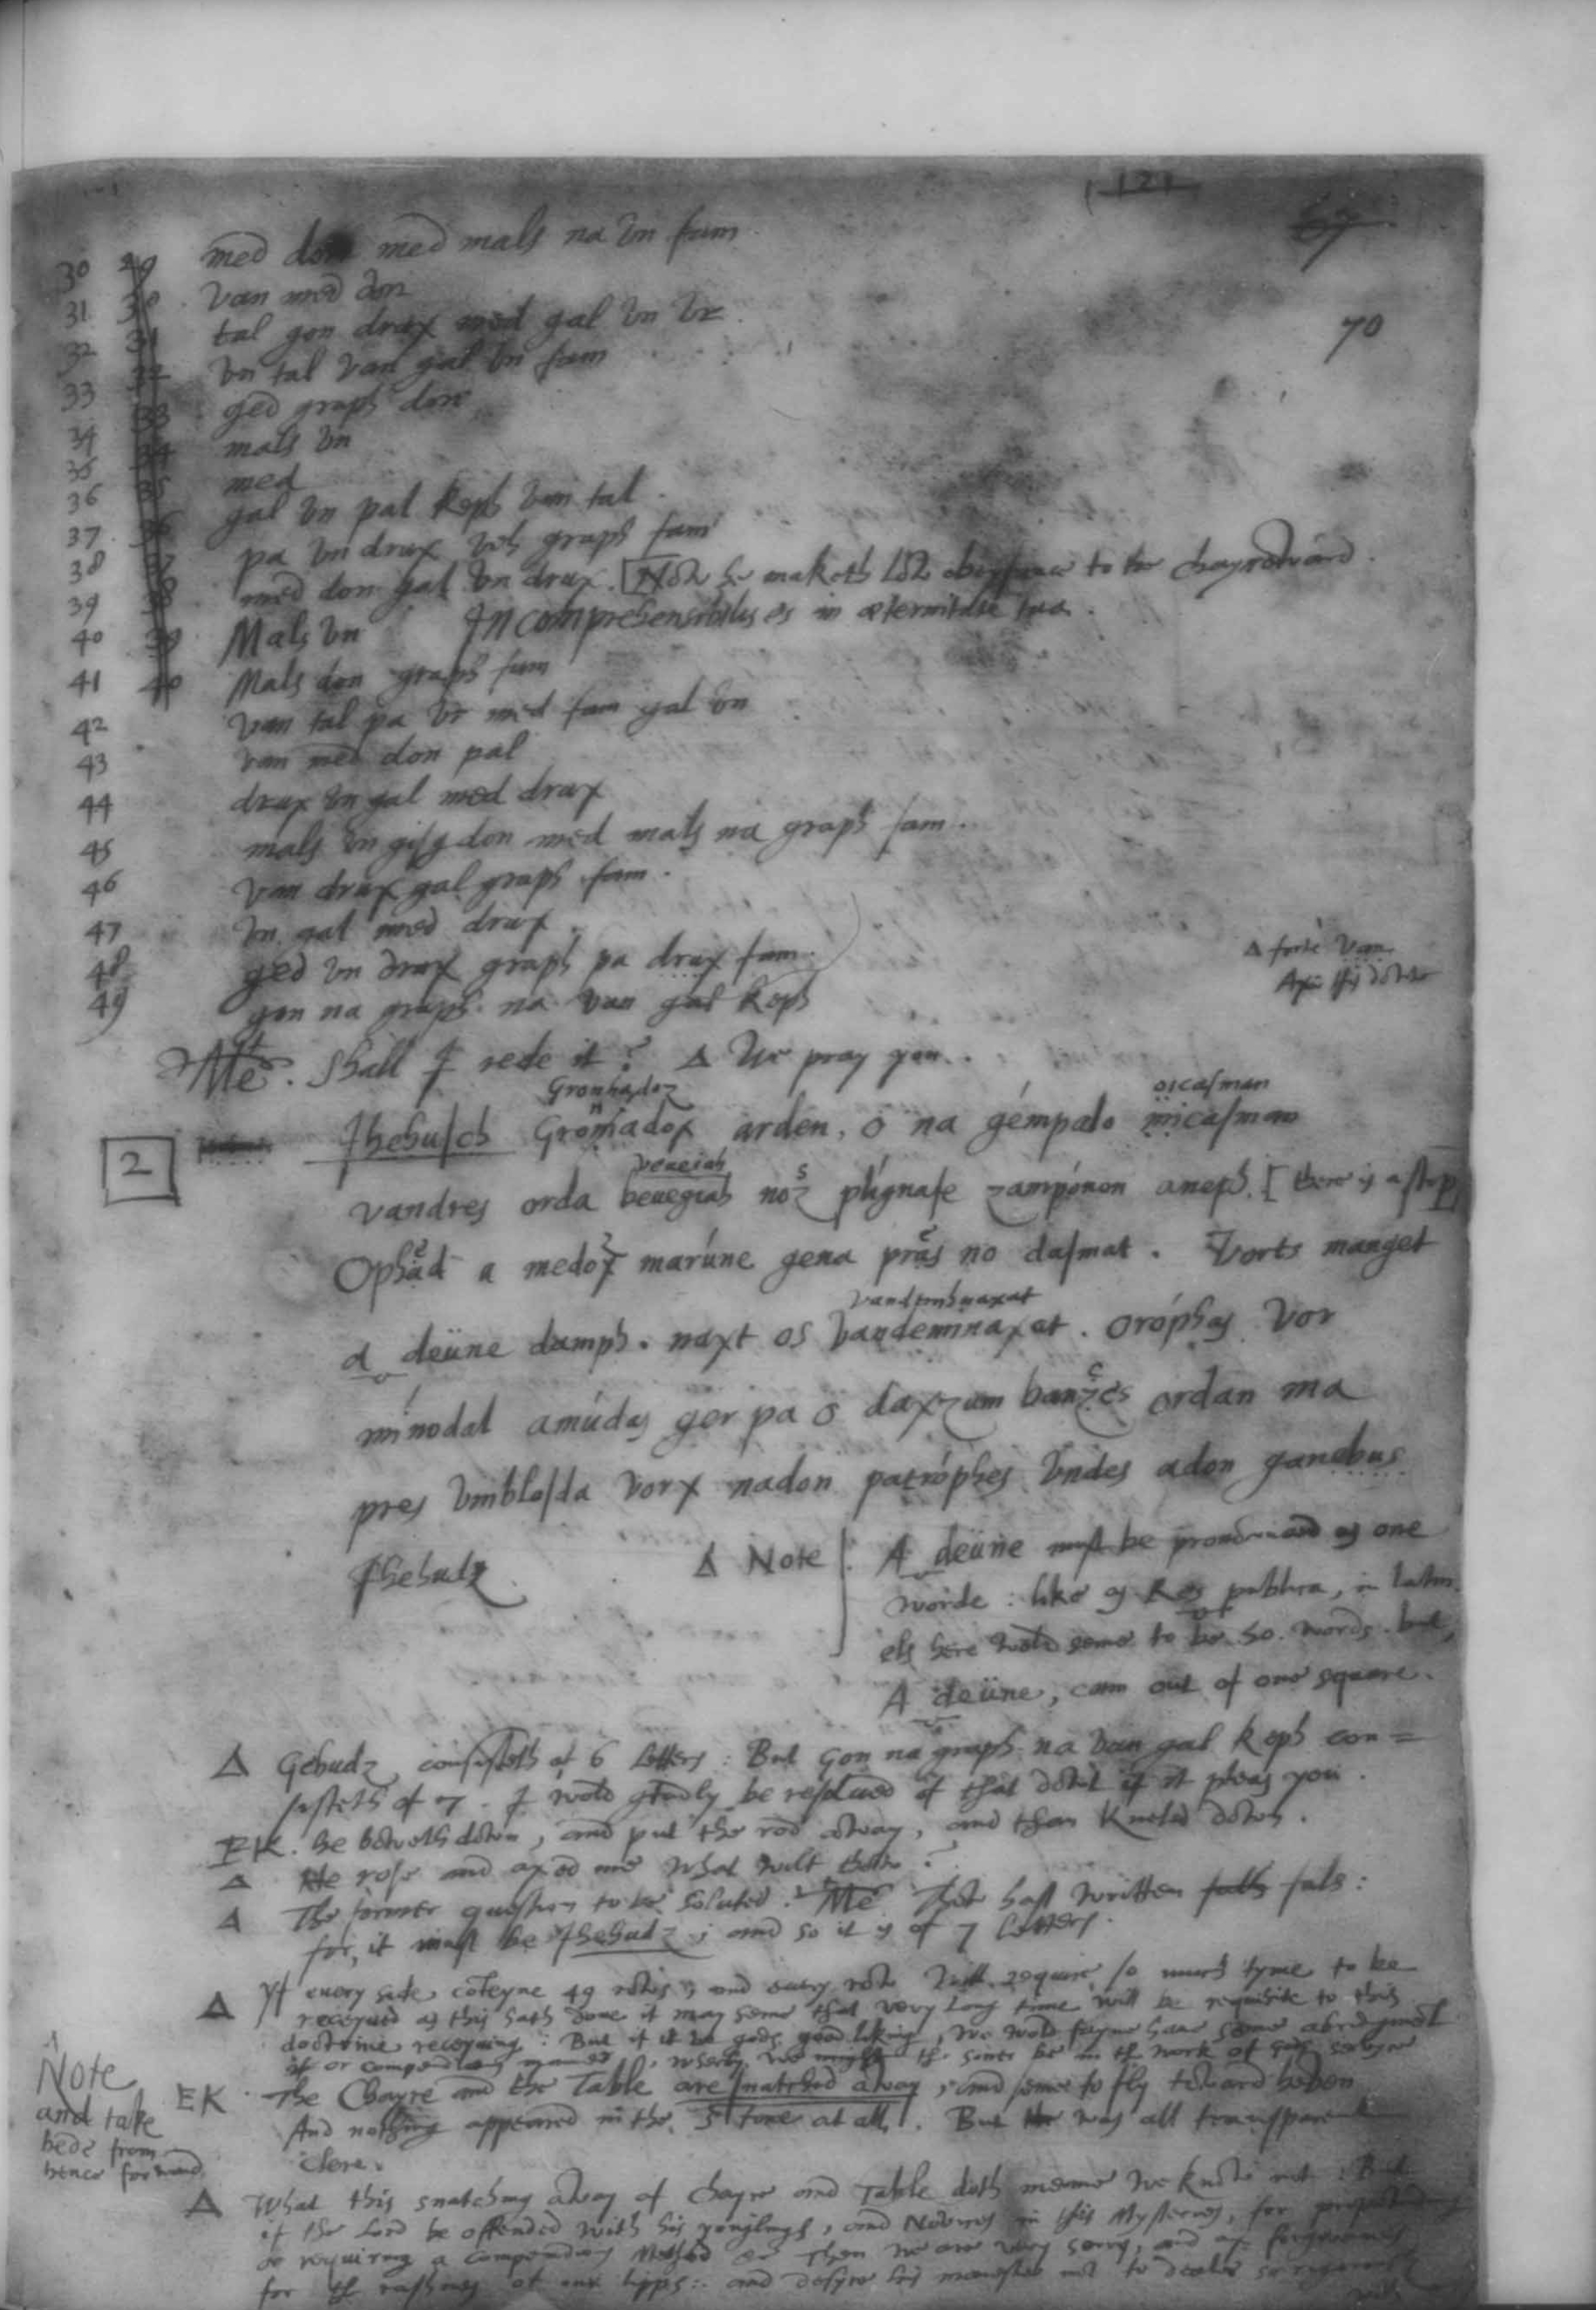 121
67
70
30 29 med don med mals na vn fam
31 30 van med don
32 31 tal gon drux med gal vn vr
33 32 vn tal van gal vn fam
34 33 ged graph don
35 34 mals vn
36 35 med
37 36 gal vn pal keph van tal
38 37 pa vn drux veh graph fam
39 38 med don gal vn drux. [Now he maketh low obeysance to the chayreward.
40 39 Mals vn Incomprehensibilis es in æternitate tua.
41 40 Mals don graph fam
42 van tal pa vr med fam gal vn
43 van med don pal
44 drux vn gal med drux
45 mals vn gisg don med mals na graph fam.
46 van drux gal graph fam.
47 vn gal med drux.
48 ged vn drux graph pa drux fam.
49 gon na graph na van gal keph
Δ forte Van
Axe this dowte
Me. Shall I rede it? Δ We pray you.
Gronhadoz oicasman
2 Jhehusch Gronhadox arden, o na gémpalo micasman
veueiah
vandres orda beuegiah noz plígnase zampónon aneph. [there is a stop
Ophad a medox marúne gena pras no dasmat. Vorts manget
vandemhnaxat
a deüne damph. naxt os vandeminaxat. oróphas vor
mínodal amúdas ger pa o daxzum banzes ordan ma
pres vmblosda vorx nadon patróphes vndes adon ganebus
Jhehudz Δ Note A deüne must be pronownced as one
worde: like as Res publica, in latin.
els here wold seme to be 50. words. but,
A deüne, cam out of one square.
Δ Gehudz consisteth of 6 letters: But Gon na graph na van gal keph con=
sisteth of 7. I wold gladly be resolued of that dowt if it pleas you.
EK. he boweth down, and put the rod away, and than kneled down.
Δ He rose and axed me what wilt thow?
Δ The former question to be soluted. Me Thow hast written fals:
for, it must be Jhehudz; and so it is of 7 letters.
Δ Yf euery side, conteyne 49 rows, and euery row will require so much tyme to be
receyued as this hath done it may seme that very long time will be requisite to this
doctrine receyuing: But if it be gods good liking, we wold fayne haue some abridgment
or compendious manner, wherby we might the soner be in the work of Gods seruyce
EK The Chayre and the Table are snatched away, and seme to fly toward heven
And nothing appeared in the Stone at all. But was all transparent
clere.
Note
and take
hede from
hence forward
Δ What this snatching away of Chayre and Table doth meane we know not: But
if the Lord be offended with his yonglings, and Novices in this Mysteries, for
or requiring a compendious Method &c Then we are very sorry, and ax forgivenes
for the rashnes of our lipps: and desyre his maiestie not to deale so rigorously
with